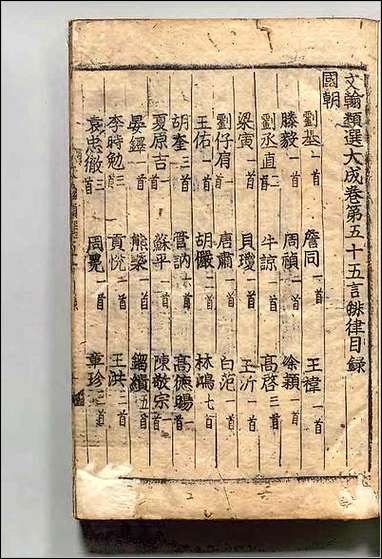 文翰類選大成卷第五十五言排律目録
國朝
劉基一首 詹同一首 王禕一首
滕毅一首 周禎一首 徐穎一首
劉丞直二首 牛諒一首 高啓三首
梁寅一首 貝瓊一首 王沂一首
劉仔肩一首 唐肅一首 白范一首
王佑一首 胡儼二首 林鴻七首
胡奎三首 管訥一首 高德暘一首
夏原吉一首 蘇平一首 陳敬宗一首
晏鐸一首 熊槩一首 鐂績五首
李時勉三首 貢悅一首 王洪二首
袁忠徹一首 周㫤一首 章珍三首